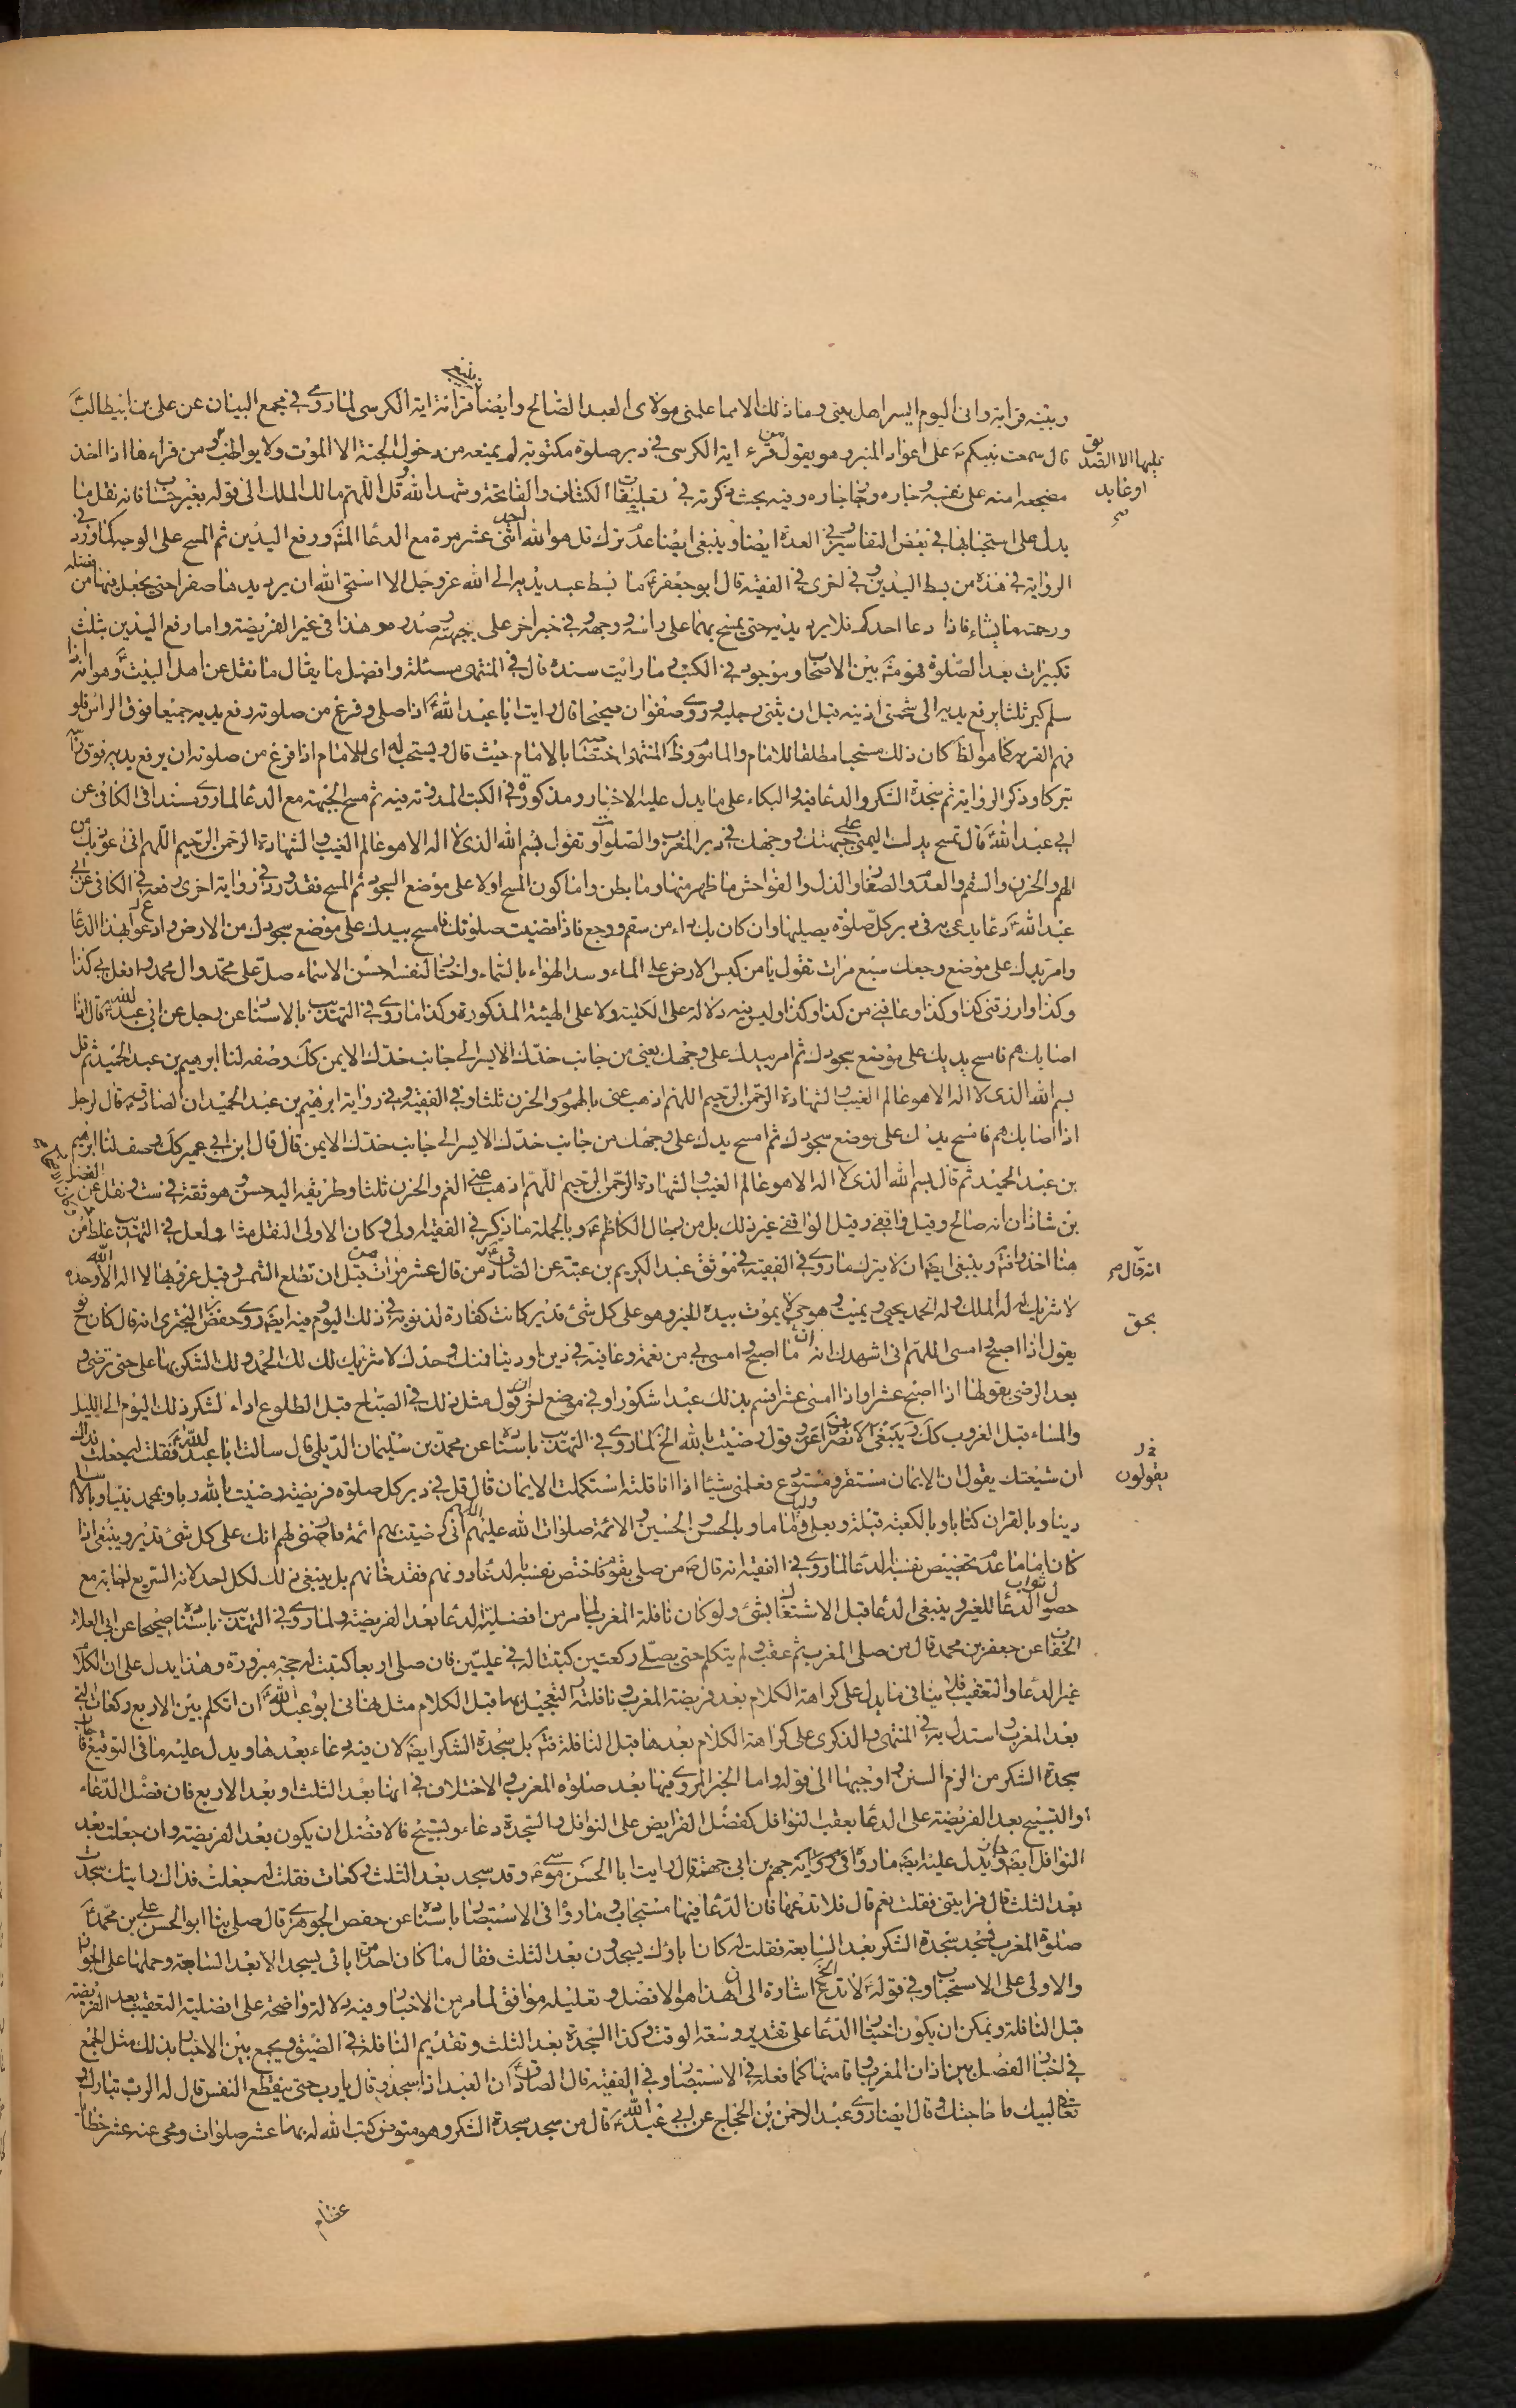 وبينه قرابة وانى اليوم ايسر اهل بيتى وما ذلك الا مما علمنى مولاى العبد الصالح وايضا ينبغى قرائة اية الكرسى لما روى فى مجمع البيان عن على بن ابيطالب
قال سمعت نبيكم على اعواد المنبر وهو يقول من قرء اية الكرسى فى دبر صلوة مكتوبة لم يمنعه من دخول الجنة الا الموت ولا يواظب عليها الا الصديق او عابد ومن قراءها اذا اخذ
مضجعه امنه على نفسه وجاره وجار جاره وفيه بحث ذكرته فى تعليقات الكشاف والفاتحة وشهد الله وقل اللهم مالك الملك الى قوله بغير حساب فانه نقل ما
يدل على استحبابها فى بعض التفاسير وفى العدة ايضا وينبغى ايضا عدم ترك قل هو الله احد اثنى عشر مرة مع الدعا ورفع اليدين ثم المسح على الوجه كما ورد فى
الرواية فى هذه من بسط اليدين وفى اخرى فى الفقيه قال ابو جعفر ما بسط عبد يديه الى الله عز وجل الا استحى الله ان يرد يدها صفرا حتى يجعل فيها من فضله
ورحمته ما يشاء فاذا دعا احدكم فلا يرد يديه حتى يمسح بهما على راسه ووجهه وفى خبر اخر على وجهه وصدره هذا فى غير الفريضة واما رفع اليدين بثلث
تكبيرات بعد الصلوة فهو بين الاصحاب وموجود فى الكتب وما رايت سنده قال فى المنتهى مسئلة وافضل ما يقال ما نقل عن اهل البيت وهو انه اذا
سلم كبر ثلثا يرفع يديه الى شحمتى اذنيه قبل ان يثنى رجليه وروى صفوان صحيحا قال رايت ابا عبد الله اذا صلى وفرغ من صلوته رفع يديه جميعا فوق الراس فلو
فهم القربة كما هو الظ كان ذلك مستحبا مطلقا للامام والماموم وظ المنتهى اختصاصه بالامام حيث قال ويستحب له اى للامام اذا فرغ من صلوته ان يرفع يديه فوق راسه
تبركا وذكر الرواية ثم سجدة الشكر والدعا فيه والبكاء على ما يدل عليه الاخبار ومذكورة فى الكتب المدونة فيه ثم مسح الجبهة مع الدعا لما روى مسندا فى الكافى عن
ابى عبد الله قال تمسح يدك اليمنى على جبهتك ووجهك فى دبر المغرب والصلوات وتقول بسم الله الذى لا اله الا هو عالم الغيب والشهادة الرحمن الرحيم اللهم انى اعوذ بك من
الهم والحزن والسقم والعدم والصغار والذل والفواحش ما ظهر منها وما بطن واما كون المسح اولا على موضع السجود ثم المسح فقد ورد فى رواية اخرى رفعه فى الكافى عن ابى
عبد الله دعا يدعى به فى دبر كل صلوة يصليها وان كان بك داء من سقم ووجع فاذا قضيت صلوتك فامسح بيدك على موضع سجودك من الارض وادع بهذا الدعا
وامر يدك على موضع وجعك سبع مرات تقول يا من كبس الارض على الماء وسد الهواء بالسماء واختار لنفسه احسن الاسماء صل على محمد وال محمد وافعل بى كذا
وكذا وارزقنى كذا وكذا وعافنى من كذا وكذا وليس فيه دلالة على الكلية ولا على الهيئة المذكورة وكذا ما روى فى التهذيب بالاسناد عن رجل عن ابى عبد الله قال اذا
اصابك هم فامسح يديك على موضع سجودك ثم امر بيدك على وجهك يعنى من جانب خدك الايسر الى جانب خدك الايمن كك وصفه لنا ابرهيم بن عبد الحميد ثم قل
بسم الله الذى لا اله الا هو عالم الغيب والشهادة الرحمن الرحيم اللهم اذهب عنى بالهموم والحزن ثلثا وفى الفقيه وفى رواية ابرهيم بن عبد الحميد ان الصادق قال لرجل
اذا اصابك هم فامسح يدك على موضع سجودك ثم امسح يدك على وجهك من جانب خدك الايسر الى جانب خدك الايمن قال قال ابن ابى عمير كك وصف لنا ابرهيم
بن عبد الحميد ثم قال بسم الله الذى لا اله الا هو عالم الغيب والشهادة الرحمن الرحيم اللهم اذهب عنى الغم والحزن ثلثا وطريقه اليه حسن وهو ثقة فى ست ونقل عن الفضل
بن شاذان انه صالح وقيل واقفى وقيل الواقفى غير ذلك بل من رجال الكاظم وبالجملة ما ذكر فى الفقيه اولى وكان الاولى النقل منها ولعل فى التهذيب غلط من
هنا اخذ وينبغى ايضا ان لا يترك ما روى فى الفقيه فى موثق عبد الكريم بن عتبة عن الصادق انه قال من قال عشر مرات قبل ان تطلع الشمس وقبل غروبها لا اله الا الله وحده
لا شريك له له الملك وله الحمد يحيى ويميت وهو حى لا يموت بيده الخير وهو على كل شئ قدير كانت كفارة لذنوبه فى ذلك اليوم وفيه ايضا روى حفص البخترى انه قال كان نوح
يقول اذا اصبح وامسى اللهم انى اشهدك انه ما اصبح وامسى بى من نعمة وعافية فى دين او دنيا فمنك وحدك لا شريك لك لك الحمد ولك الشكر بها على حتى ترضى و
بعد الرضى يقولها اذا اصبح عشرا واذا امسى عشرا فسمى بذلك عبدا شكورا وفى موضع اخر يقول مثل ذلك فى الصباح قبل الطلوع اداء لشكر ذلك اليوم الى الليل
والمساء قبل الغروب كك وينبغى الا نصراف عن قول رضيت بالله الخ لما روى فى التهذيب باسناده عن محمد بن سليمان الديلمى قال سالت ابا عبد الله فقلت له جعلت فداك
ان شيعتك يقولون ان الايمان مستقر ومستودع فعلمنى شيئا اذا انا قلته استكملت الايمان قال قل فى دبر كل صلوة فريضة رضيت بالله ربا وبمحمد نبيا وبالاسلام
دينا وبالقران كتابا وبالكعبة قبلة وبعلى وليا واماما وبالحسن والحسين والائمة صلوات الله عليهم اللهم انى رضيت بهم ائمة فارضنى لهم انك على كل شئ قدير وينبغى اذا
كان اماما عدم تخصيص نفسه بالدعا لما روى فى الفقيه انه قال من صلى بقوم فاختص نفسه بالدعا دونهم فقد خانهم بل ينبغى ذلك لكل احد لانه السريع اجابة مع
حصول ثواب الدعا للغير وينبغى الدعا قبل الاشتغال بشئ ولو كان نافلة المغرب لما مر من افضلية الدعا بعد الفريضة ولما روى فى التهذيب باسناده صحيحا عن ابى العلاء
الخفاف عن جعفر بن محمد قال من صلى المغرب ثم عقب ولم يتكلم حتى يصلى ركعتين كتبتا له فى عليين فان صلى اربعا كتبت له حجة مبرورة وهذا يدل على ان الكلام
غير الدعا والتعقيب فلا ينافى ما يدل على كراهة الكلام بعد فريضة المغرب ونافلته والتعجيل بهما قبل الكلام مثل نهانى ابو عبد الله ان اتكلم بين الاربع ركعات التى
بعد المغرب واستدل به فى المنتهى والذكرى على كراهة الكلام بعدها قبل النافلة بل سجدة الشكر ايضا لان فيه دعاء بعدها ويدل عليه ما فى التوقيع فان
سجدة الشكر من الزم السنن واوجبها الى قوله واما الخبر المروى فيها بعد صلوة المغرب والاختلاف فى انها بعد الثلث او بعد الاربع فان فضل الدعاء
والتسبيح بعد الفريضة على الدعا بعقب النوافل كفضل الفرايض على النوافل والسجدة دعاء وتسبيح فالافضل ان يكون بعد الفريضة وان جعلت بعد
النوافل ايضا جاز ويدل عليه ايضا ما رواه فى رواية جهم بن ابى جهمة قال رايت ابا الحسن موسى وقد سجد بعد الثلث ركعات فقلت له جعلت فداك رايتك سجدت
بعد الثلث قال فرايتنى فقلت نعم قال فلا تدعها فان الدعا فيها مستجاب وما رواه فى الاستبصار باسناده عن حفص الجوهرى قال صلى بنا ابو الحسن على بن محمد
صلوة المغرب فسجد سجدة الشكر بعد السابعة فقلت له كان اباؤك يسجدون بعد الثلث فقال ما كان احد من ابائى يسجد الا بعد السابعة وحملها على الجواز
والاولى على الاستحباب وفى قوله لا تدع الخ اشارة الى ان هذا هو الافضل وتعليله موافق لما مر من الاخبار وفيه دلالة واضحة على افضلية التعقيب بعد الفريضة
قبل النافلة ويمكن ان يكون اخبار الدعا على تقدير وسعة الوقت وكذا السجدة بعد الثلث وتقديم النافلة فى الضيق ويجمع بين الاخبار بذلك مثل الجمع
فى اخبار الفصل بين اذان المغرب واقامتها كما فعله فى الاستبصار وفى الفقيه قال الصادق ان العبد اذا سجد وقال يا رب حتى ينقطع النفس قال له الرب تبارك و
تعالى لبيك ما حاجتك وقال ايضا روى عبد الرحمن بن الحجاج عن ابى عبد الله قال من سجد سجدة الشكر وهو متوض كتب الله له بها عشر صلوات ومحى عنه عشر خطايا
عظام